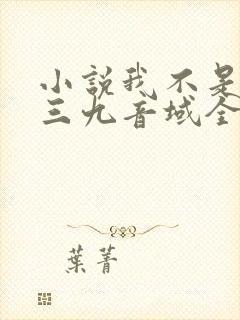 小説我不是
三九音域全
葉菁